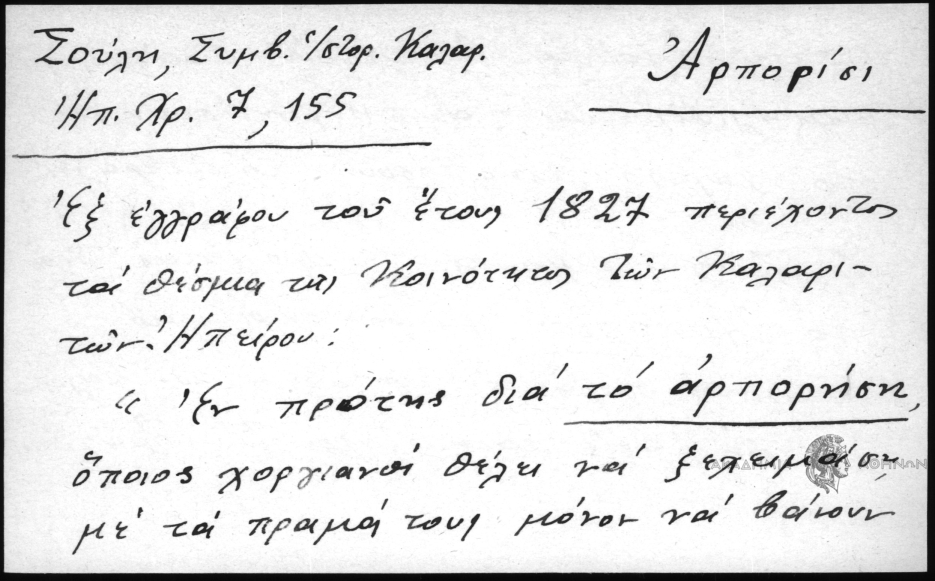 Σούλη, Συμβ. Ἱστορ. Καλαρ.
Ἠπ. Χρ. 7, 155
Ἀρπορίσι
Ἐξ ἐγγράφου τοῦ ἔτους 1827 περιέχοντος
τά θέσμια τῆς Κοινότητος τῶν Καλαρι-
τῶν Ἠπείρου:
« Ἐν πρότης διά τό ἀρπορήση,
ὅποιος χοργιανός θέλει νά ξεχειμάση
μέ τά πραμά τους μόνον νά βάνουν
ΑΚΑΔΗΜΙΑ ΑΘΗΝΩΝ